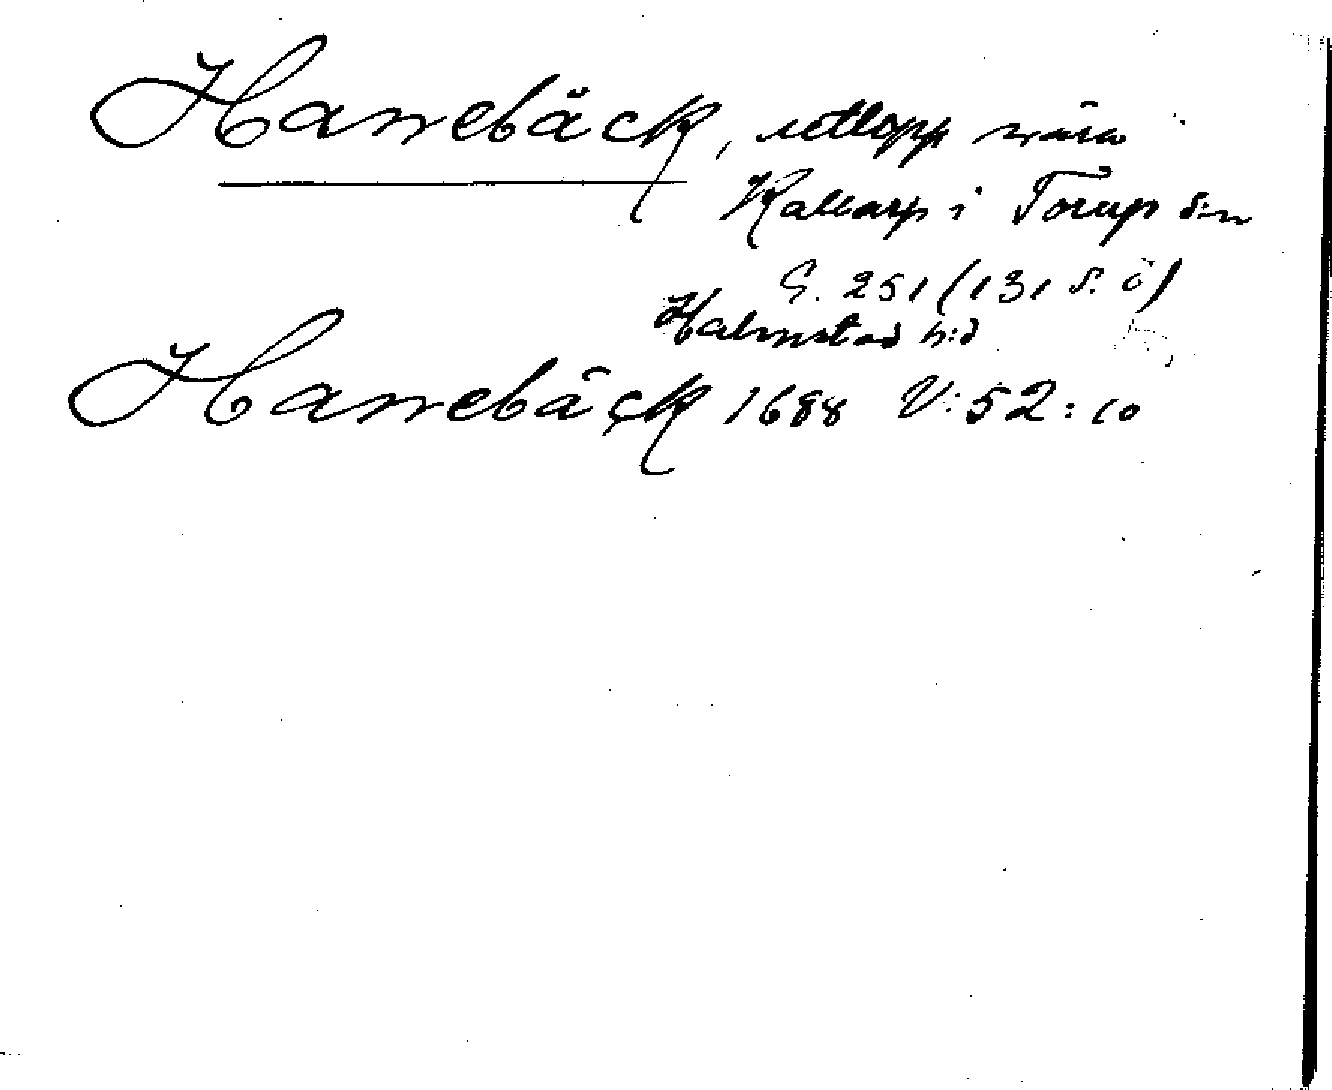 Hanebäck, utlopp nära
Kallarp i Torup s:n
G. 251 (131 s. ö)
Halmstad h:d
Hanebäck 1688 V:52:10